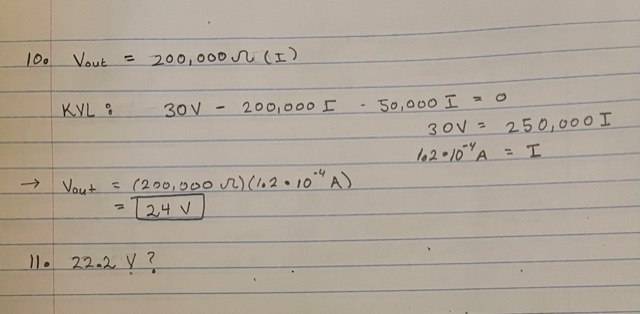 10. Vout = 200,000 Ω (I)
KVL: 30V - 200,000 I - 50,000 I = 0
30V = 250,000 I
1.2•10⁻⁴ A = I
→ Vout = (200,000 Ω)(1.2•10⁻⁴ A)
= 24 V
11. 22.2 V?